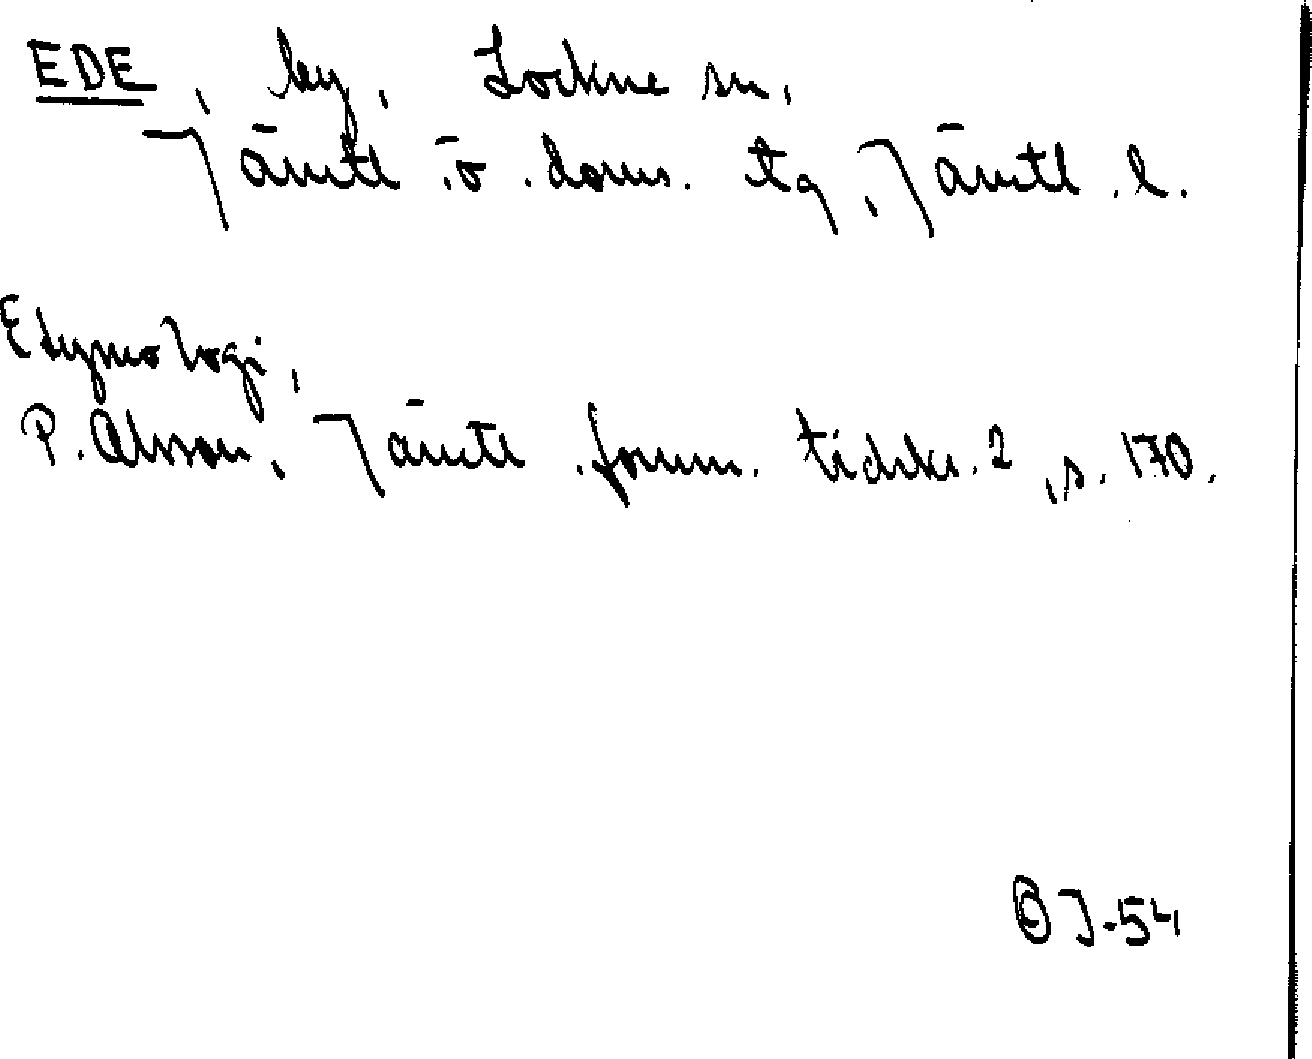 EDE, by, Lockne sn,
Jämtl. ö. doms. tg, Jämtl. l.
Etymologi,
P. Olsson, Jämtl. fornm. tidskr. 2, s. 170.
J-54